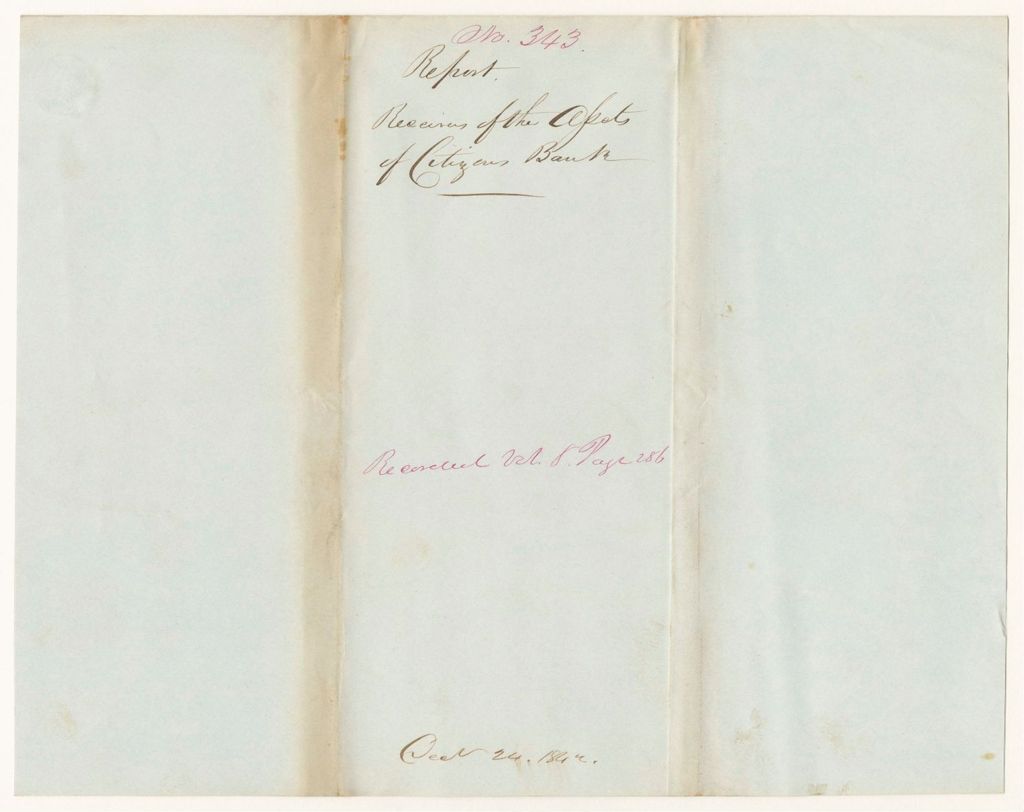 No. 343.
Report.
Receivers of the Assets
of Citizens Bank
Recorded Vol. 8. Page 286
24. 184